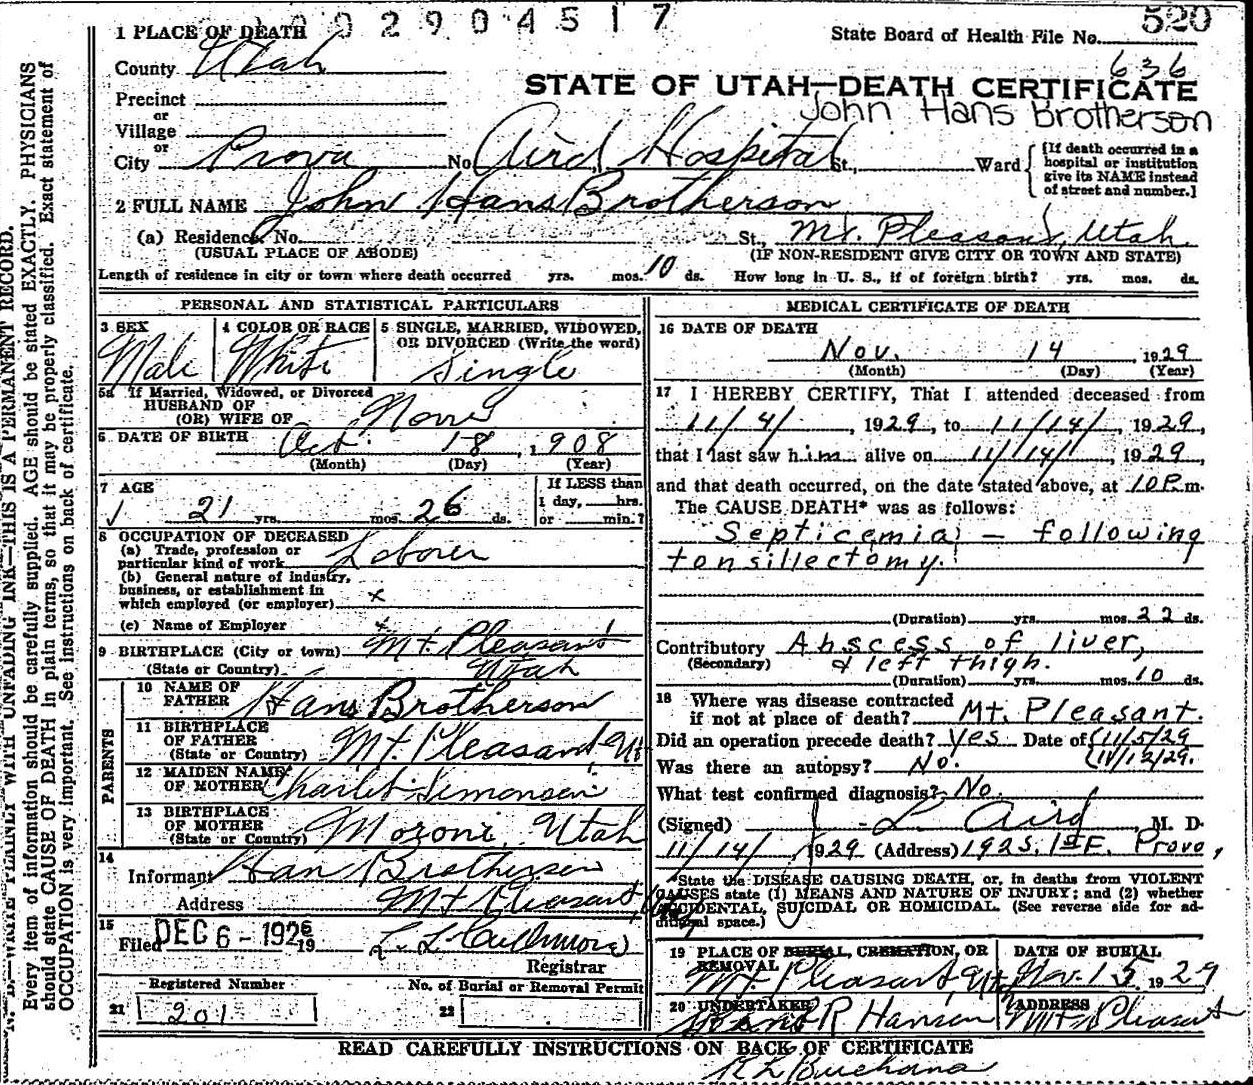 1 0 0 2 9 0 4 5 1 7
520
1 PLACE OF DEATH
State Board of Health File No.
636
County Utah
STATE OF UTAH—DEATH CERTIFICATE
Precinct
John Hans Brotherson
or
Village
or
City Provo No. Aird Hospital St., Ward
{If death occurred in a
hospital or institution
give its NAME instead
of street and number.]
2 FULL NAME John Hans Brotherson
(a) Residence. No. St., Mt. Pleasant, Utah
(USUAL PLACE OF ABODE) (IF NON-RESIDENT GIVE CITY OR TOWN AND STATE)
Length of residence in city or town where death occurred yrs. mos. 10 ds. How long in U. S., if of foreign birth? yrs. mos. ds.
PERSONAL AND STATISTICAL PARTICULARS
3 SEX
Male
4 COLOR OR RACE
White
5 SINGLE, MARRIED, WIDOWED,
OR DIVORCED (Write the word)
Single
5a If Married, Widowed, or Divorced
HUSBAND OF
(OR) WIFE OF None
6 DATE OF BIRTH Oct. 18, 1908
(Month) (Day) (Year)
7 AGE
21 yrs. mos. 26 ds.
If LESS than
1 day, hrs.
or min.?
8 OCCUPATION OF DECEASED
(a) Trade, profession or
particular kind of work Laborer
(b) General nature of industry,
business, or establishment in
which employed (or employer) x
(c) Name of Employer x
9 BIRTHPLACE (City or town) Mt. Pleasant
(State or Country) Utah
PARENTS
10 NAME OF
FATHER Hans Brotherson
11 BIRTHPLACE
OF FATHER
(State or Country) Mt. Pleasant, Ut
12 MAIDEN NAME
OF MOTHER Simonsen
13 BIRTHPLACE
OF MOTHER
(State or Country) Moroni Utah
14
Informant Han Brotherson
Address Mt Pleasant
15
Filed DEC 6 - 1926 19
Registrar
Registered Number
21 201
No. of Burial or Removal Permit
22
MEDICAL CERTIFICATE OF DEATH
16 DATE OF DEATH
Nov. 14, 1929
(Month) (Day) (Year)
17 I HEREBY CERTIFY, That I attended deceased from
11/4/, 1929, to 11/14/, 1929,
that I last saw him alive on 11/14/, 1929,
and that death occurred, on the date stated above, at 10P.m.
The CAUSE DEATH* was as follows:
Septicemia - following
tonsillectomy.
(Duration) yrs. mos. 22 ds.
Contributory Abscess of liver,
(Secondary) & left thigh.
(Duration) yrs. mos. 10 ds.
18 Where was disease contracted
if not at place of death? Mt. Pleasant.
Did an operation precede death? Yes Date of {11/5/29
Was there an autopsy? No. {11/12/29.
What test confirmed diagnosis? No.
(Signed) Aird, M. D.
11/14/ 1929 (Address) 192 S. 1st E. Provo,
*State the DISEASE CAUSING DEATH, or, in deaths from VIOLENT
CAUSES state (1) MEANS AND NATURE OF INJURY; and (2) whether
ACCIDENTAL, SUICIDAL OR HOMICIDAL. (See reverse side for ad-
ditional space.)
19 PLACE OF BURIAL, CREMATION, OR
REMOVAL
Mt. Pleasant, Ut.
DATE OF BURIAL
Nov. 15 1929
20 UNDERTAKER
R Hansen
ADDRESS
Mt Pleasant
READ CAREFULLY INSTRUCTIONS ON BACK OF CERTIFICATE
N. B.—WRITE PLAINLY WITH UNFADING INK—THIS IS A PERMANENT RECORD.
Every item of information should be carefully supplied. AGE should be stated EXACTLY. PHYSICIANS
should state CAUSE OF DEATH in plain terms, so that it may be properly classified. Exact statement of
OCCUPATION is very important. See instructions on back of certificate.